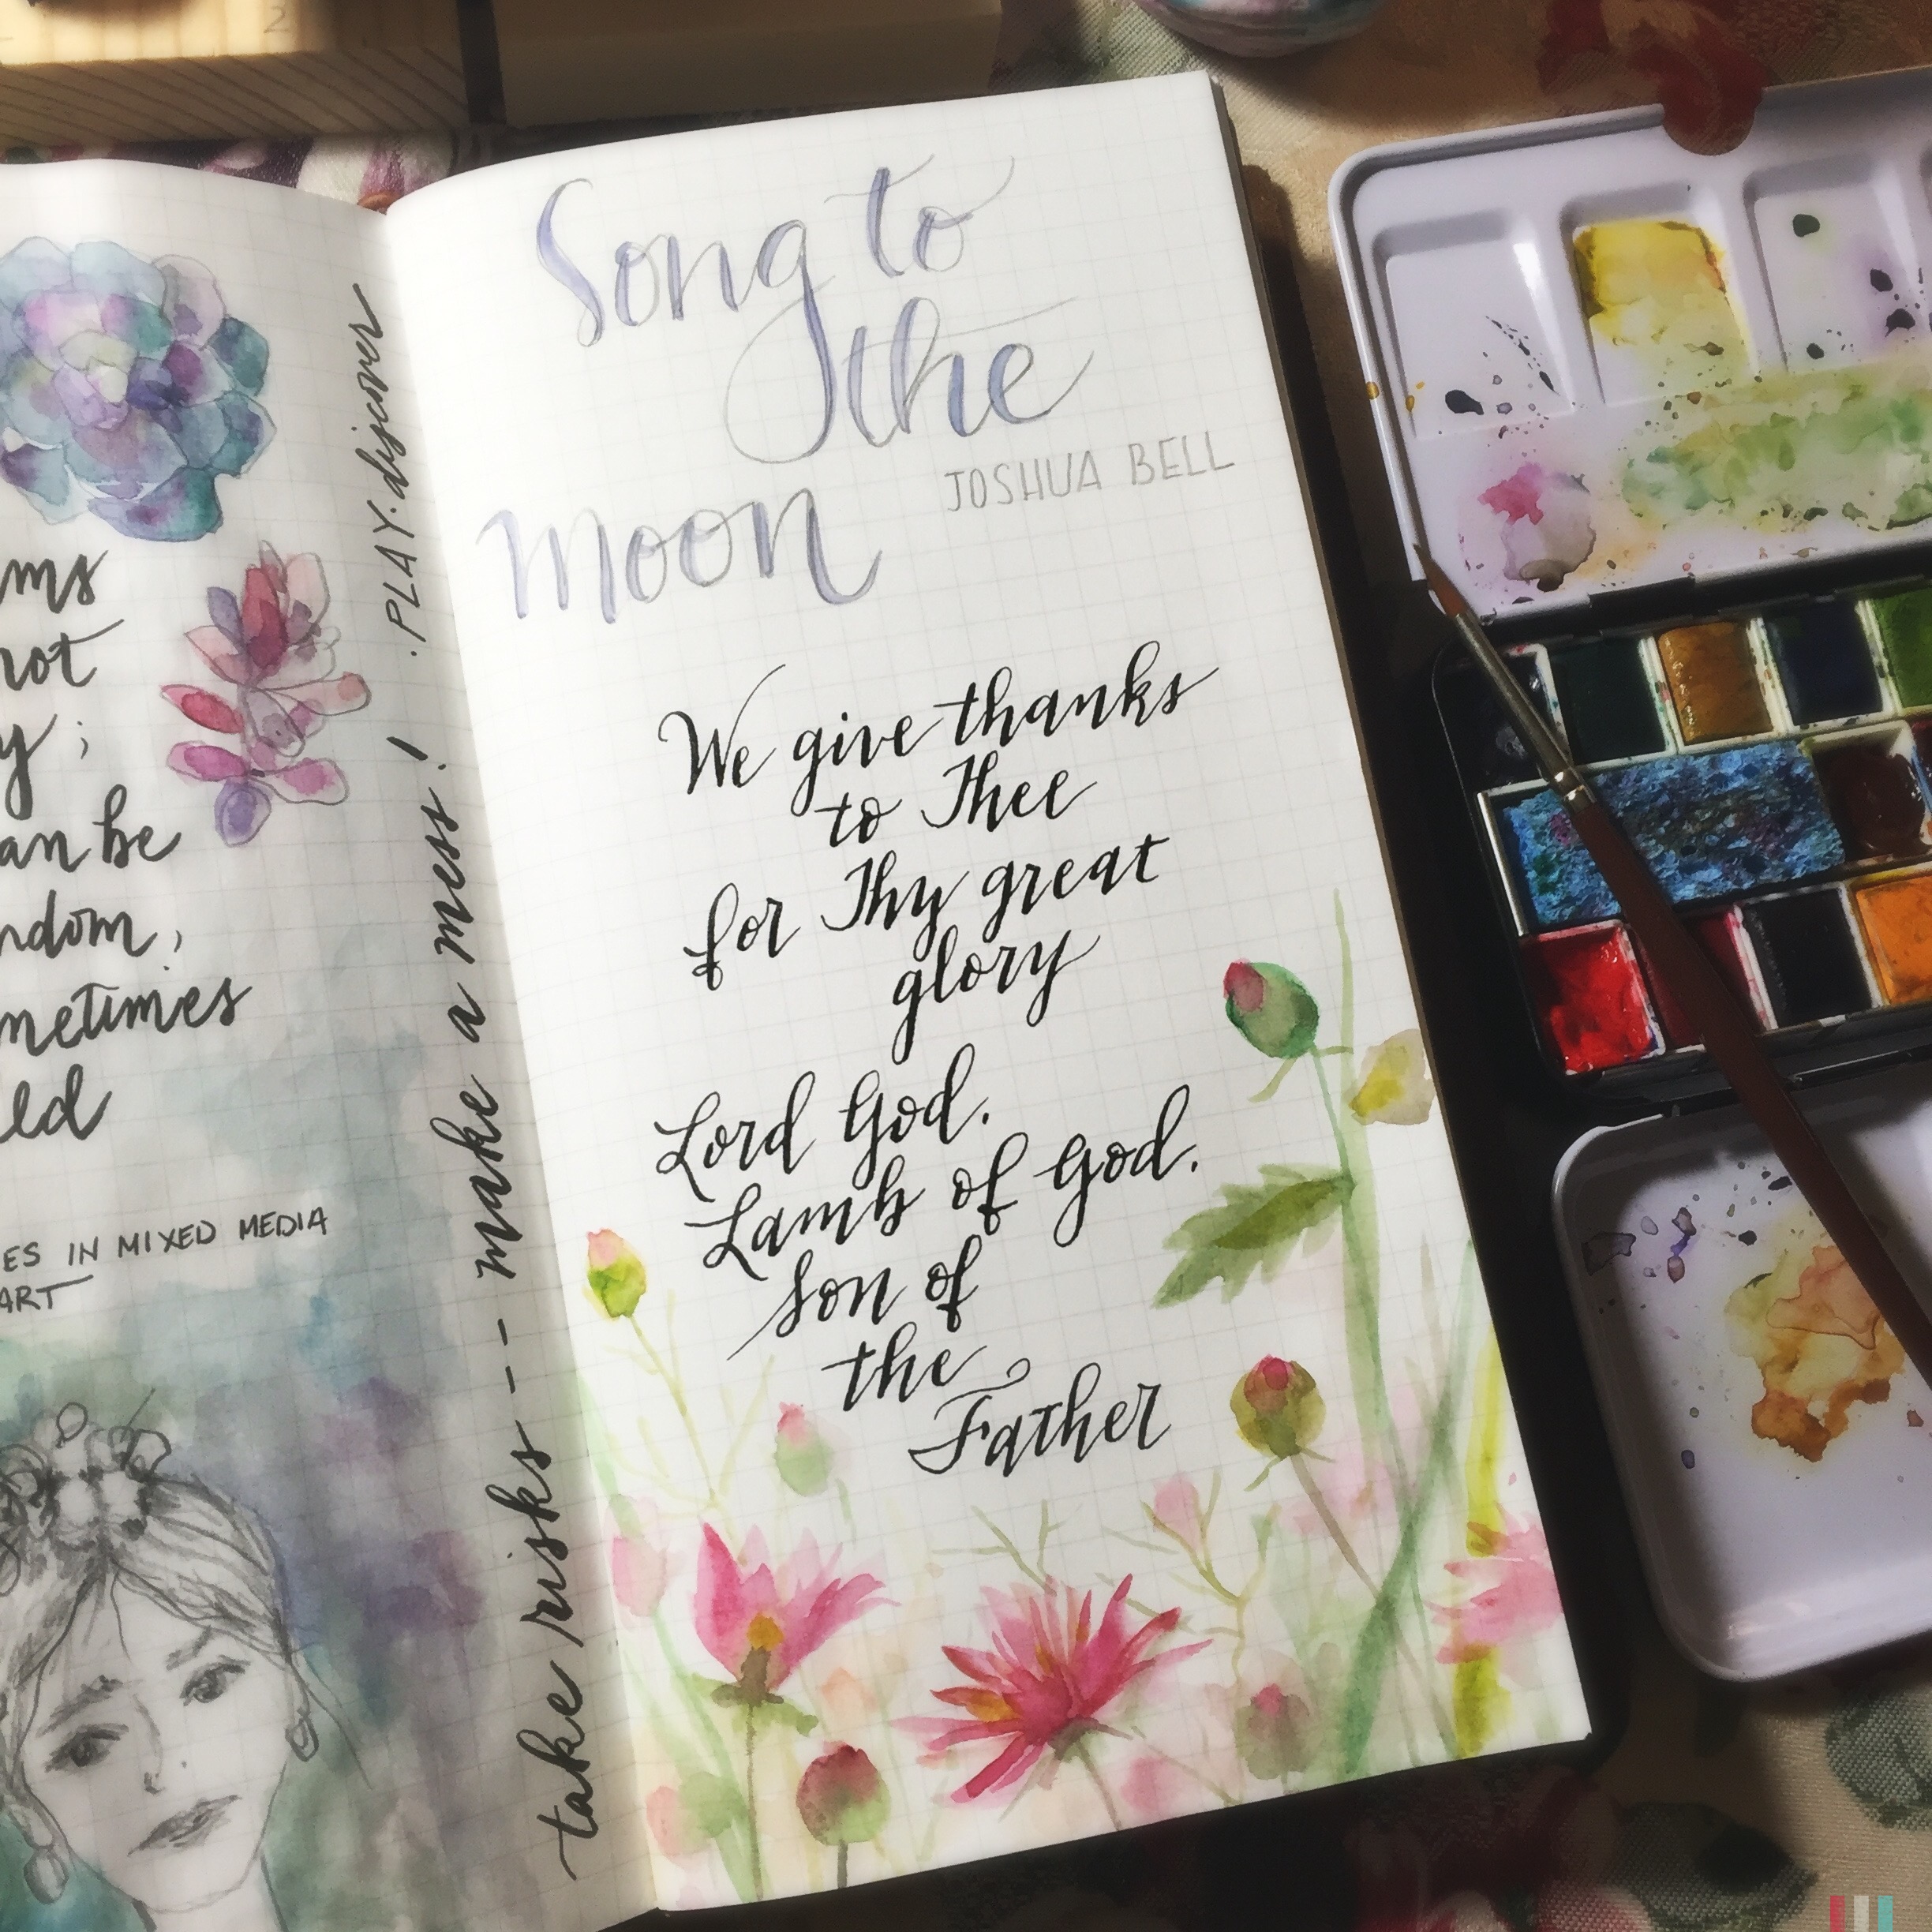 ms
not
y;
an be
ndom,
metimes
ld
ES IN MIXED MEDIA
ART
take risks -- make a mess! .PLAY.discover
Song to
the
moon
JOSHUA BELL
We give thanks
to Thee
for Thy great
glory
Lord God.
Lamb of God.
Son of
the
Father
2